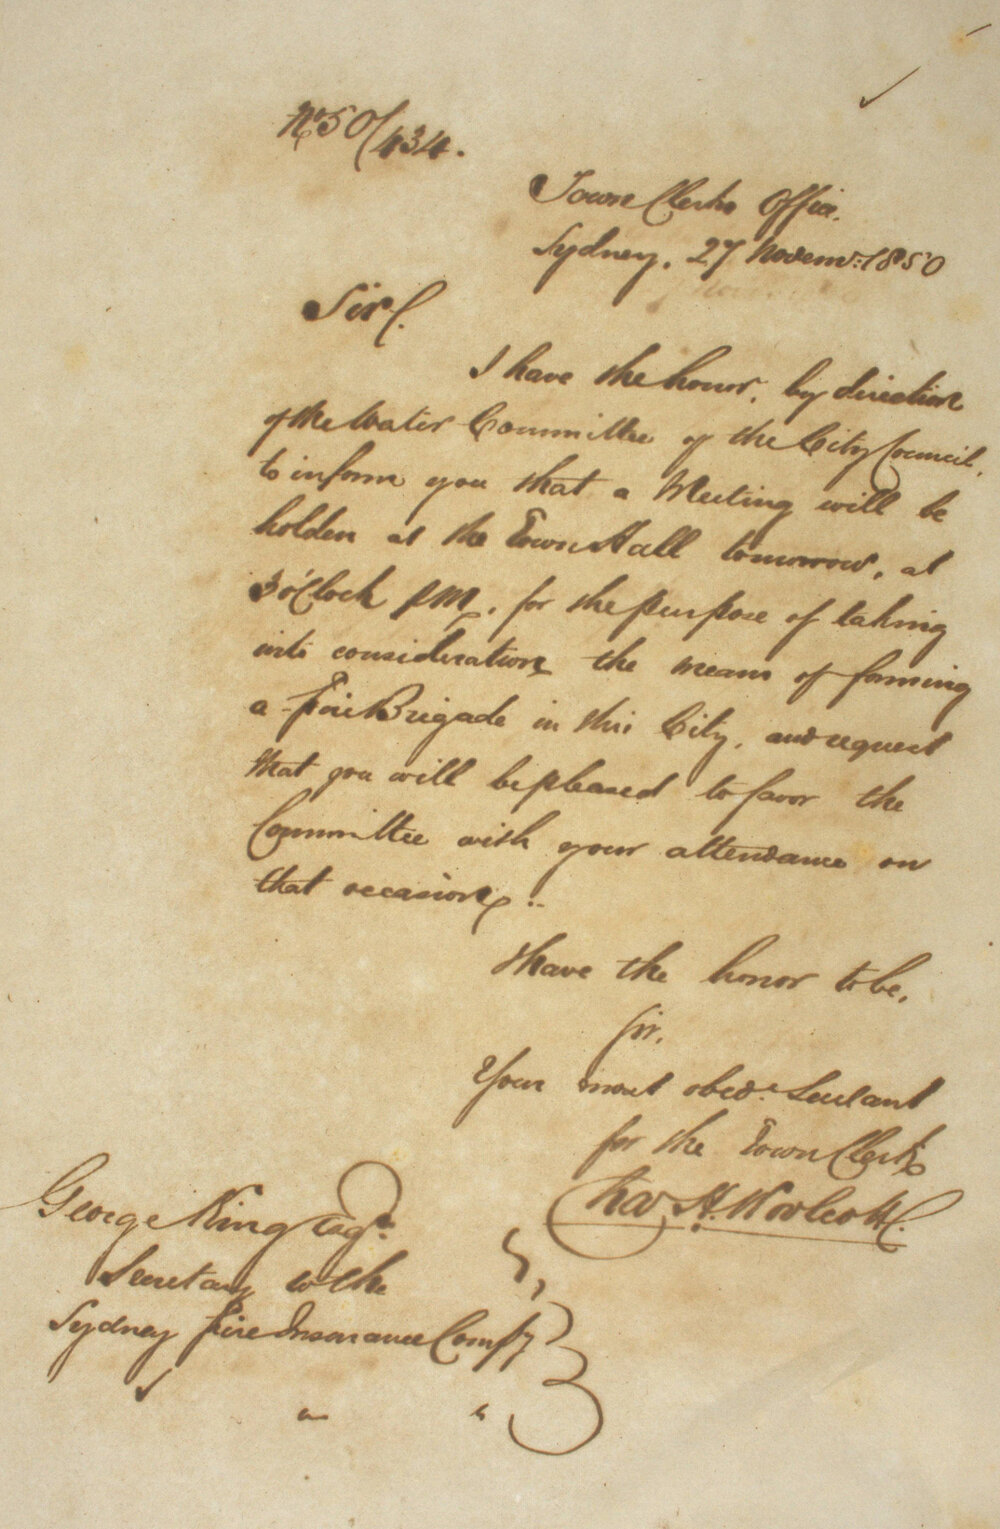 No 50/434.
Town Clerks Office.
Sydney, 27 Novemr: 1850
Sir/.
I have the honor, by direction
of the Water Committee of the City Council,
to inform you that a Meeting will be
holden at the Town Hall tomorrow, at
3 o'Clock P.M., for the purpose of taking
into consideration the means of forming
a Fire Brigade in this City, and request
that you will be pleased to favor the
Committee with your attendance on
that occasion..
I have the honor to be,
Sir,
Your most obedt. Servant
for the Town Clerk
Chas H. Woolcott/.
George King Esqre.
Secretary to the
Sydney Fire Insurance Compy